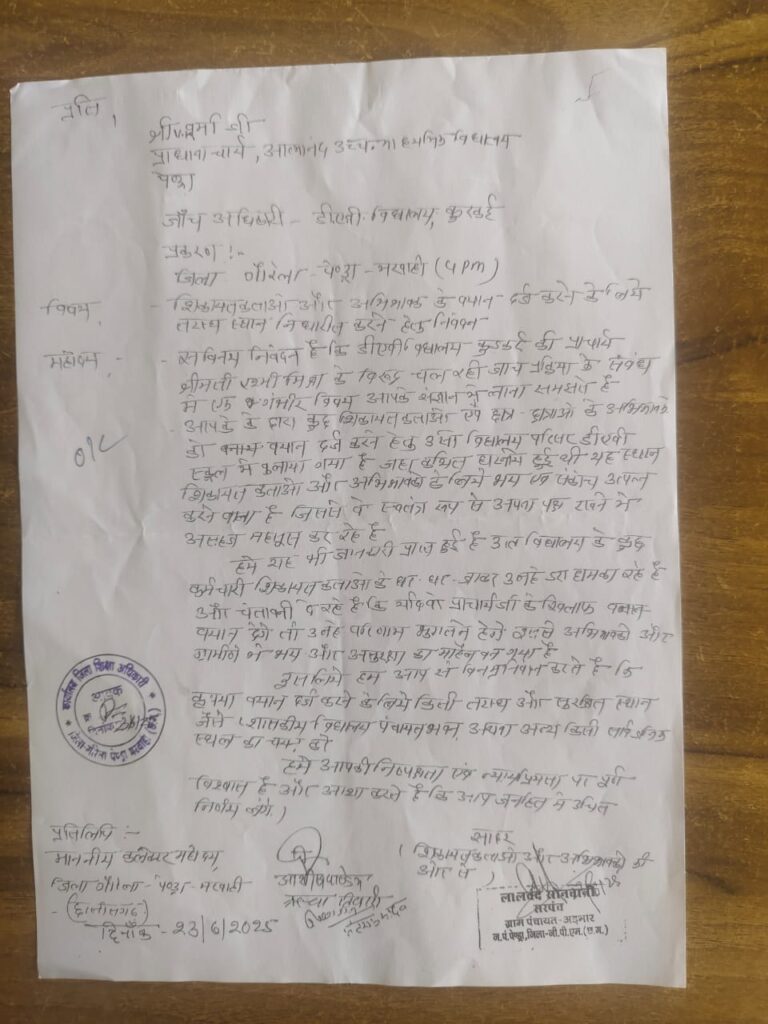 प्रति,
श्री वर्मा जी
प्राधानाचार्य, आत्मानंद उच्च. माध्यमिक विद्यालय
पेण्ड्रा
जाँच अधिकारी - डीएवी विद्यालय, कुडकई
प्रकरण :-
जिला गौरेला - पेण्ड्रा - मरवाही (
विषय - शिकायतकर्ताओ और अभिभावक के बयान दर्ज करने के लिये
तटस्थ स्थान निर्धारित करने हेतु निवेदन
महोदय - सविनय निवेदन है कि डीएवी विद्यालय कुडकई की प्राचार्य
श्रीमती रश्मी मिश्रा के विरूद्ध चल रही जांच प्रक्रिया के संबंध
मे एक गंभीर विषय आपके संज्ञान मे लाना समझते है
आपके के द्वारा कुछ शिकायतकर्ताओ एवं छात्र - छात्राओ के अभिभावको
को बयान दर्ज करने हेतु उसी विद्यालय परिसर डीएवी
स्कूल मे बुलाया गया है जहा कथित हुई थी यह स्थान
शिकायतकर्ताओ और अभिभावको के लिये भय एवं संकोच उत्पन्न
करने वाला है जिससे वे स्वतंत्र रूप से अपना पक्ष रखने मे
असहज महसूस कर रहे है
हमे यह भी जानकारी प्राप्त हुई है उक्त विद्यालय के कुछ
कर्मचारी शिकायतकर्ताओ के घर - घर जाकर उन्हे डरा धमका रहे है
और चेतावनी दे रहे है कि यदि वे प्राचार्य जी के खिलाफ
बयान देगे तो उन्हे परिणाम भुगतने होगे इससे अभिभावको और
ग्रामीणो मे भय और असुरक्षा का माहौल बन गया है
इसलिये हम आप से विनम्र निवेदन करते है कि
कृपया बयान दर्ज करने के लिये किसी तटस्थ और सुरक्षित स्थान
जैसे शासकीय विद्यालय पंचायत भवन, अथवा अन्य किसी सार्वजनिक
स्थल का चयन करे
हमे आपकी निष्पक्षता एवं न्यायप्रियता पर पूर्ण
विश्वास है और आशा करते है कि आप जनहित मे उचित
निर्णय लेंगे।
कार्यालय जिला शिक्षा अधिकारी
जिला-गौरेला पेण्ड्रा मरवाही (छ.ग.)
सादर
(शिकायतकर्ताओ और अभिभावको की
ओर से)
प्रतिलिपि :-
माननीय कलेक्टर महोदय,
जिला गौरेला - पेण्ड्रा - मरवाही
(छत्तीसगढ़)
दिनाँक - 23/6/2025
लालचंद सोनवानी
सरपंच
ग्राम पंचायत-अड़भार
ज.पं.पेण्ड्रा,जिला-जी.पी.एम.(छ.ग.)